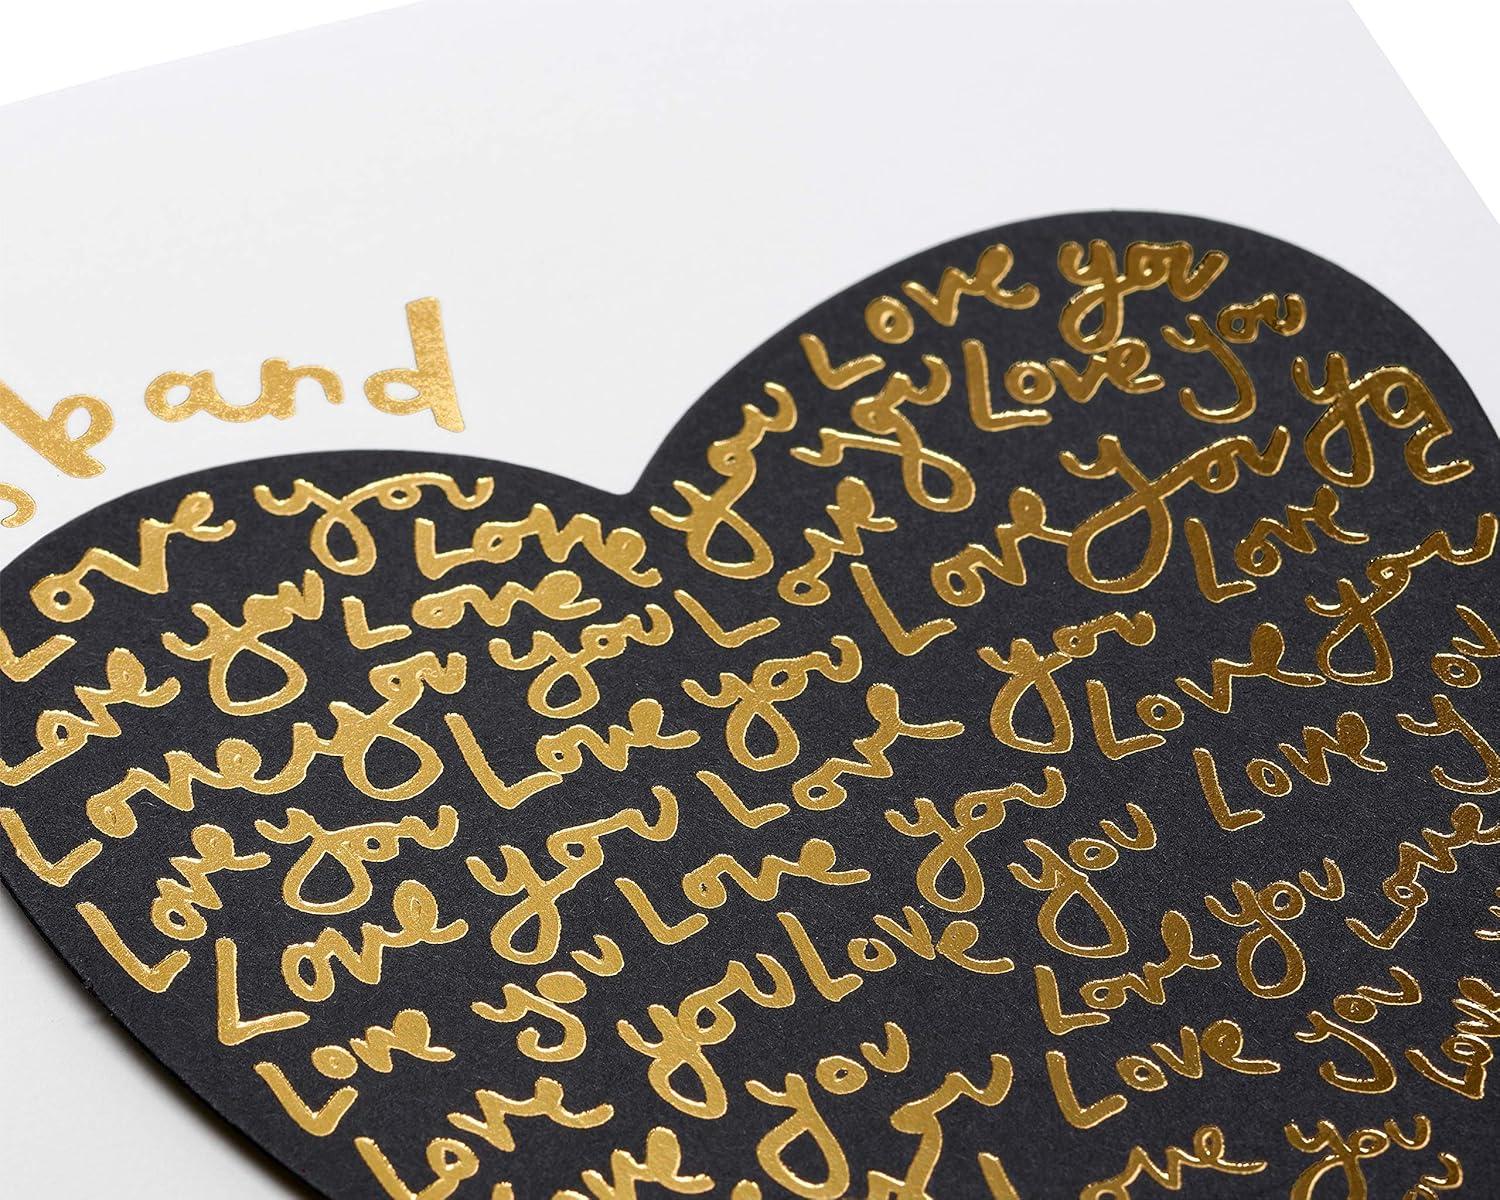 band
Love you
Love you Love you
Love you Love you
Love you Love you
Love you Love you
Love you Love you
Love you Love you
Love you Love you
Love you Love you
Love you Love you
Love you Love you
Love you Love you
Love you Love you
Love you Love you
Love you Love